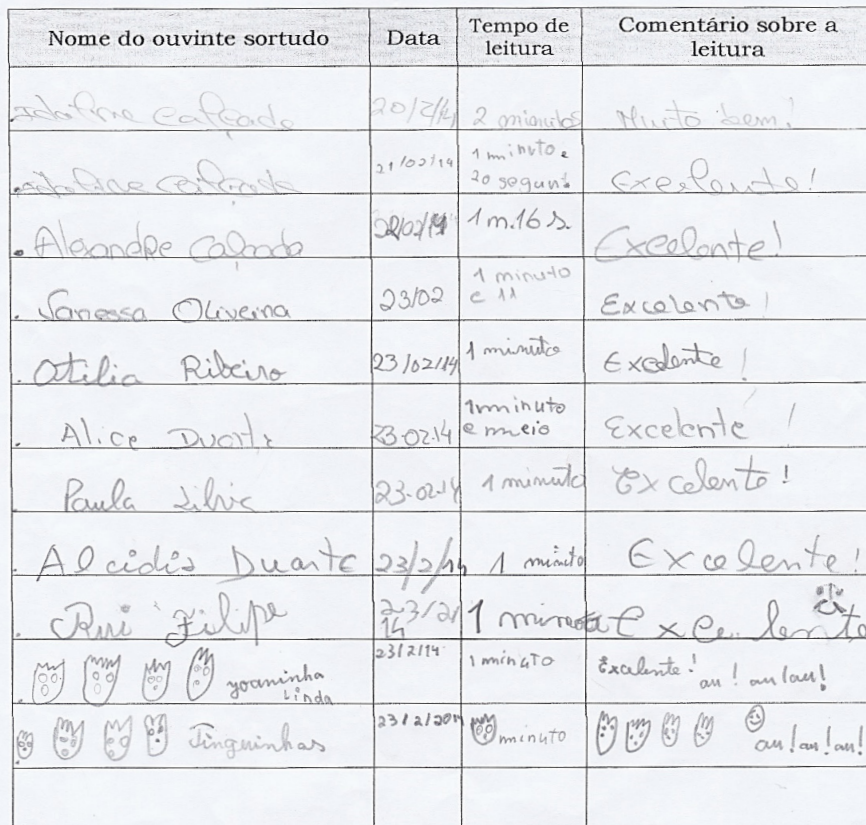 Nome do ouvinte sortudo Data Tempo de leitura Comentário sobre a leitura
20/2/14 2 minutos Muito bem!
21/02/14 1 minuto e 20 segun. Excelente!
. Alexandre Calçada 22/02/14 1 m.16 s. Excelente!
. Vanessa Oliveira 23/02 1 minuto e 11 Excelente!
. Otilia Ribeiro 23/02/14 1 minuto Excelente!
. Alice Duarte 23-02-14 1 minuto e meio Excelente!
Paula Silvia 23-02-14 1 minuto Excelente!
. Alcidis Duarte 23/2/14 1 minuto Excelente!
. Rui Filipe 23/2/14 1 minuto Excelente
. yoaninha Linda 23/2/14 1 minuto Excelente! au! au! au!
. Tinguinhas 23/2/2014 minuto au! au! au!